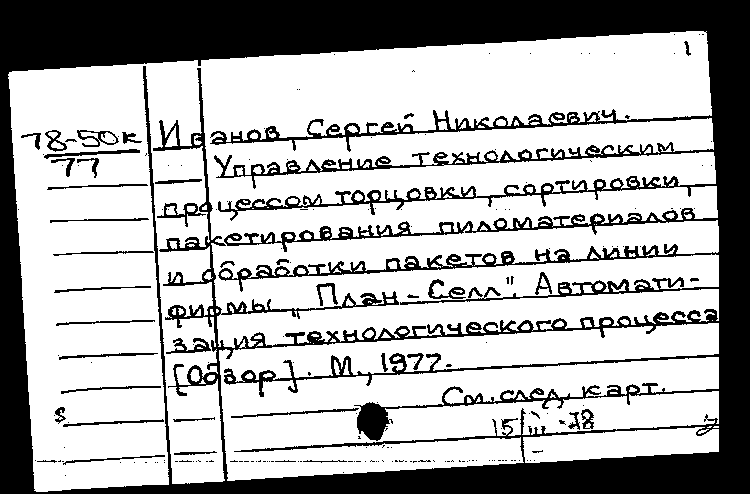 1
78-50к Иванов, Сергей Николаевич.
77 Управление технологическим
процессом торцовки, сортировки,
пакетирования пиломатериалов
и обработки пакетов на линии
фирмы „План-Селл". Автомати-
зация технологического процесса
[Обзор]. М., 1977.
См. след. карт.
15/III-78